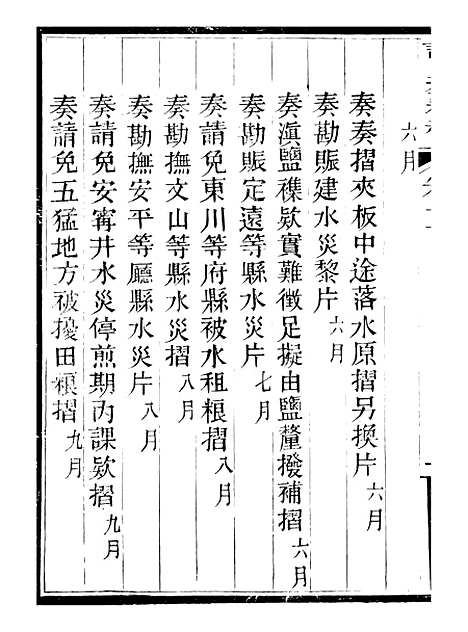 六月
奏奏摺夾板中途落水原摺另換片六月
奏勘賑建水災黎片六月
奏滇鹽襍欵實難徵足擬由鹽釐撥補摺六月
奏勘賑定遠等縣水災片七月
奏請免東川等府縣被水租糧摺八月
奏勘撫文山等縣水災摺八月
奏勘撫安平等廳縣水災片八月
奏請免安寗井水災停煎期內課欵摺九月
奏請免五猛地方被擾田糧摺九月